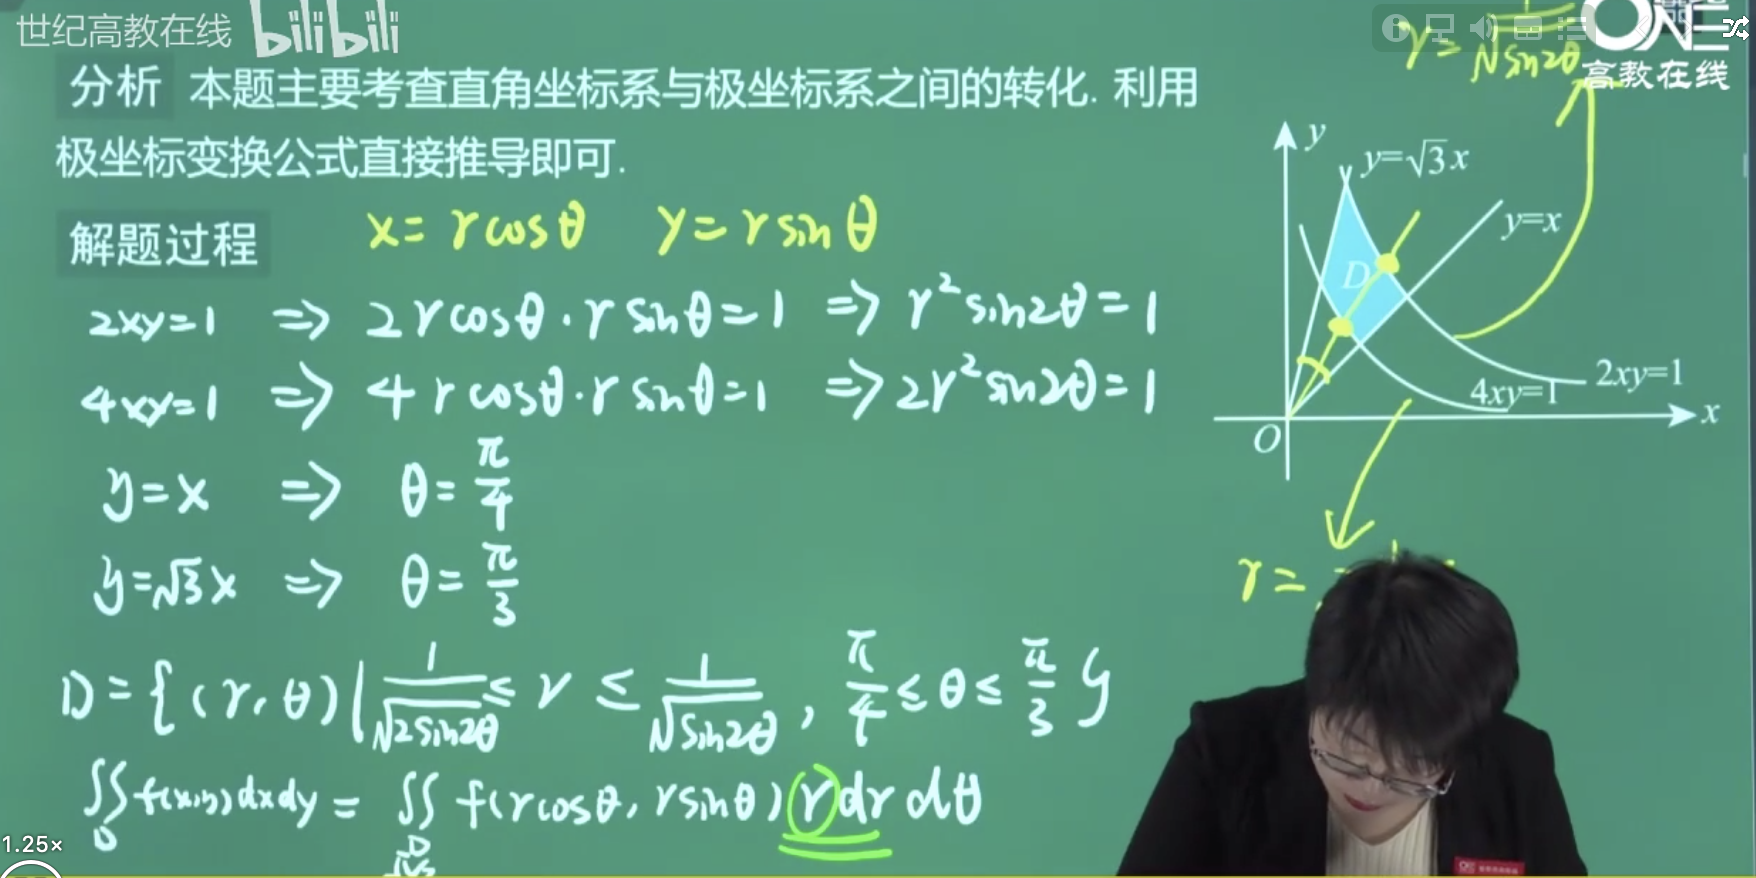 世纪高教在线 bilibili
ONE
高教在线
r = 1/√sin2θ
分析 本题主要考查直角坐标系与极坐标系之间的转化. 利用
极坐标变换公式直接推导即可.
解题过程 x = r cosθ y = r sinθ
2xy=1 ⇒ 2rcosθ·r sinθ=1 ⇒ r² sin2θ = 1
4xy=1 ⇒ 4 r cosθ·r sinθ=1 ⇒ 2r² sin2θ = 1
y=x ⇒ θ = π/4
y=√3x ⇒ θ = π/3
D = {(r,θ) | 1/√2sin2θ ≤ r ≤ 1/√sin2θ , π/4 ≤ θ ≤ π/3}
∬_D f(x,y)dxdy = ∬_D f(rcosθ, rsinθ) r dr dθ
y
y=√3x
y=x
D
2xy=1
4xy=1
x
O
r =
1.25×